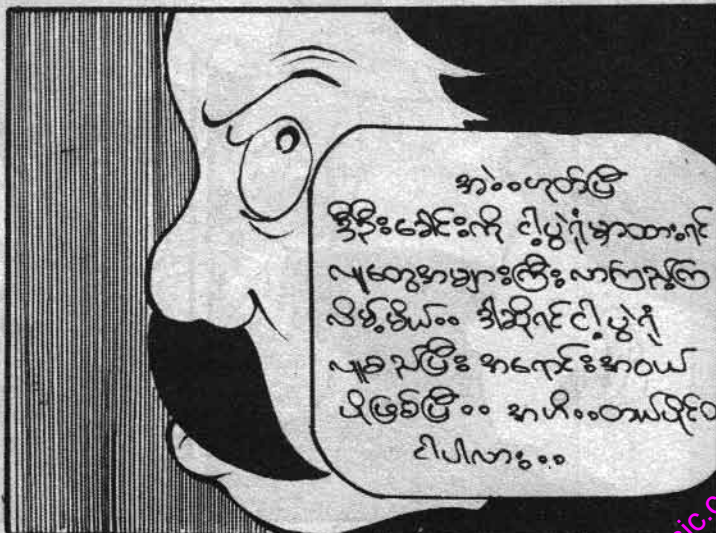 အဲ..ဟုတ်ပြီ
ဒီဦးခေါင်းကို ငါ့ပွဲရုံမှာထားရင်
လူတွေအများကြီးလာကြည့်ကြ
လိမ့်မယ်.. ဒါဆိုရင်ငါ့ပွဲရုံ
လူစည်ပြီးအရောင်းအဝယ်
ပိုဖြစ်ပြီ.. အဟိ..တယ်ပိုင်တဲ့
ငါပါလား..
ic.c